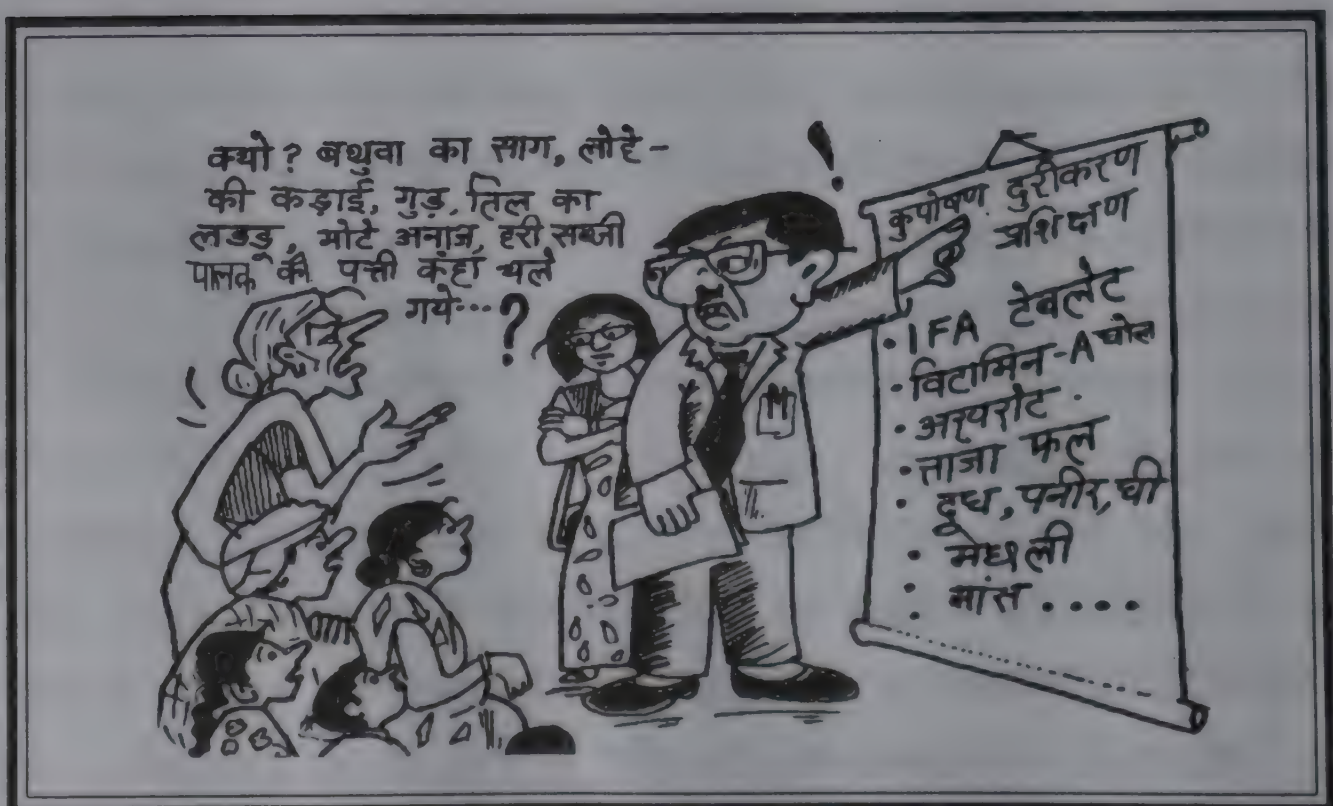 क्यो? बथुवा का साग, लोहे-
की कड़ाई, गुड़, तिल का
लडडू, मोटे अनाज, हरी सब्जी
पालक की पत्ती कंहा चले
गये...?
!
कुपोषण दुरीकरण
प्रशिक्षण
• IFA टेबलेट
• विटामिन-A घोल
• अरारोट
• ताजा फल
• दूध, पनीर, घी
• मछली
• मांस ....